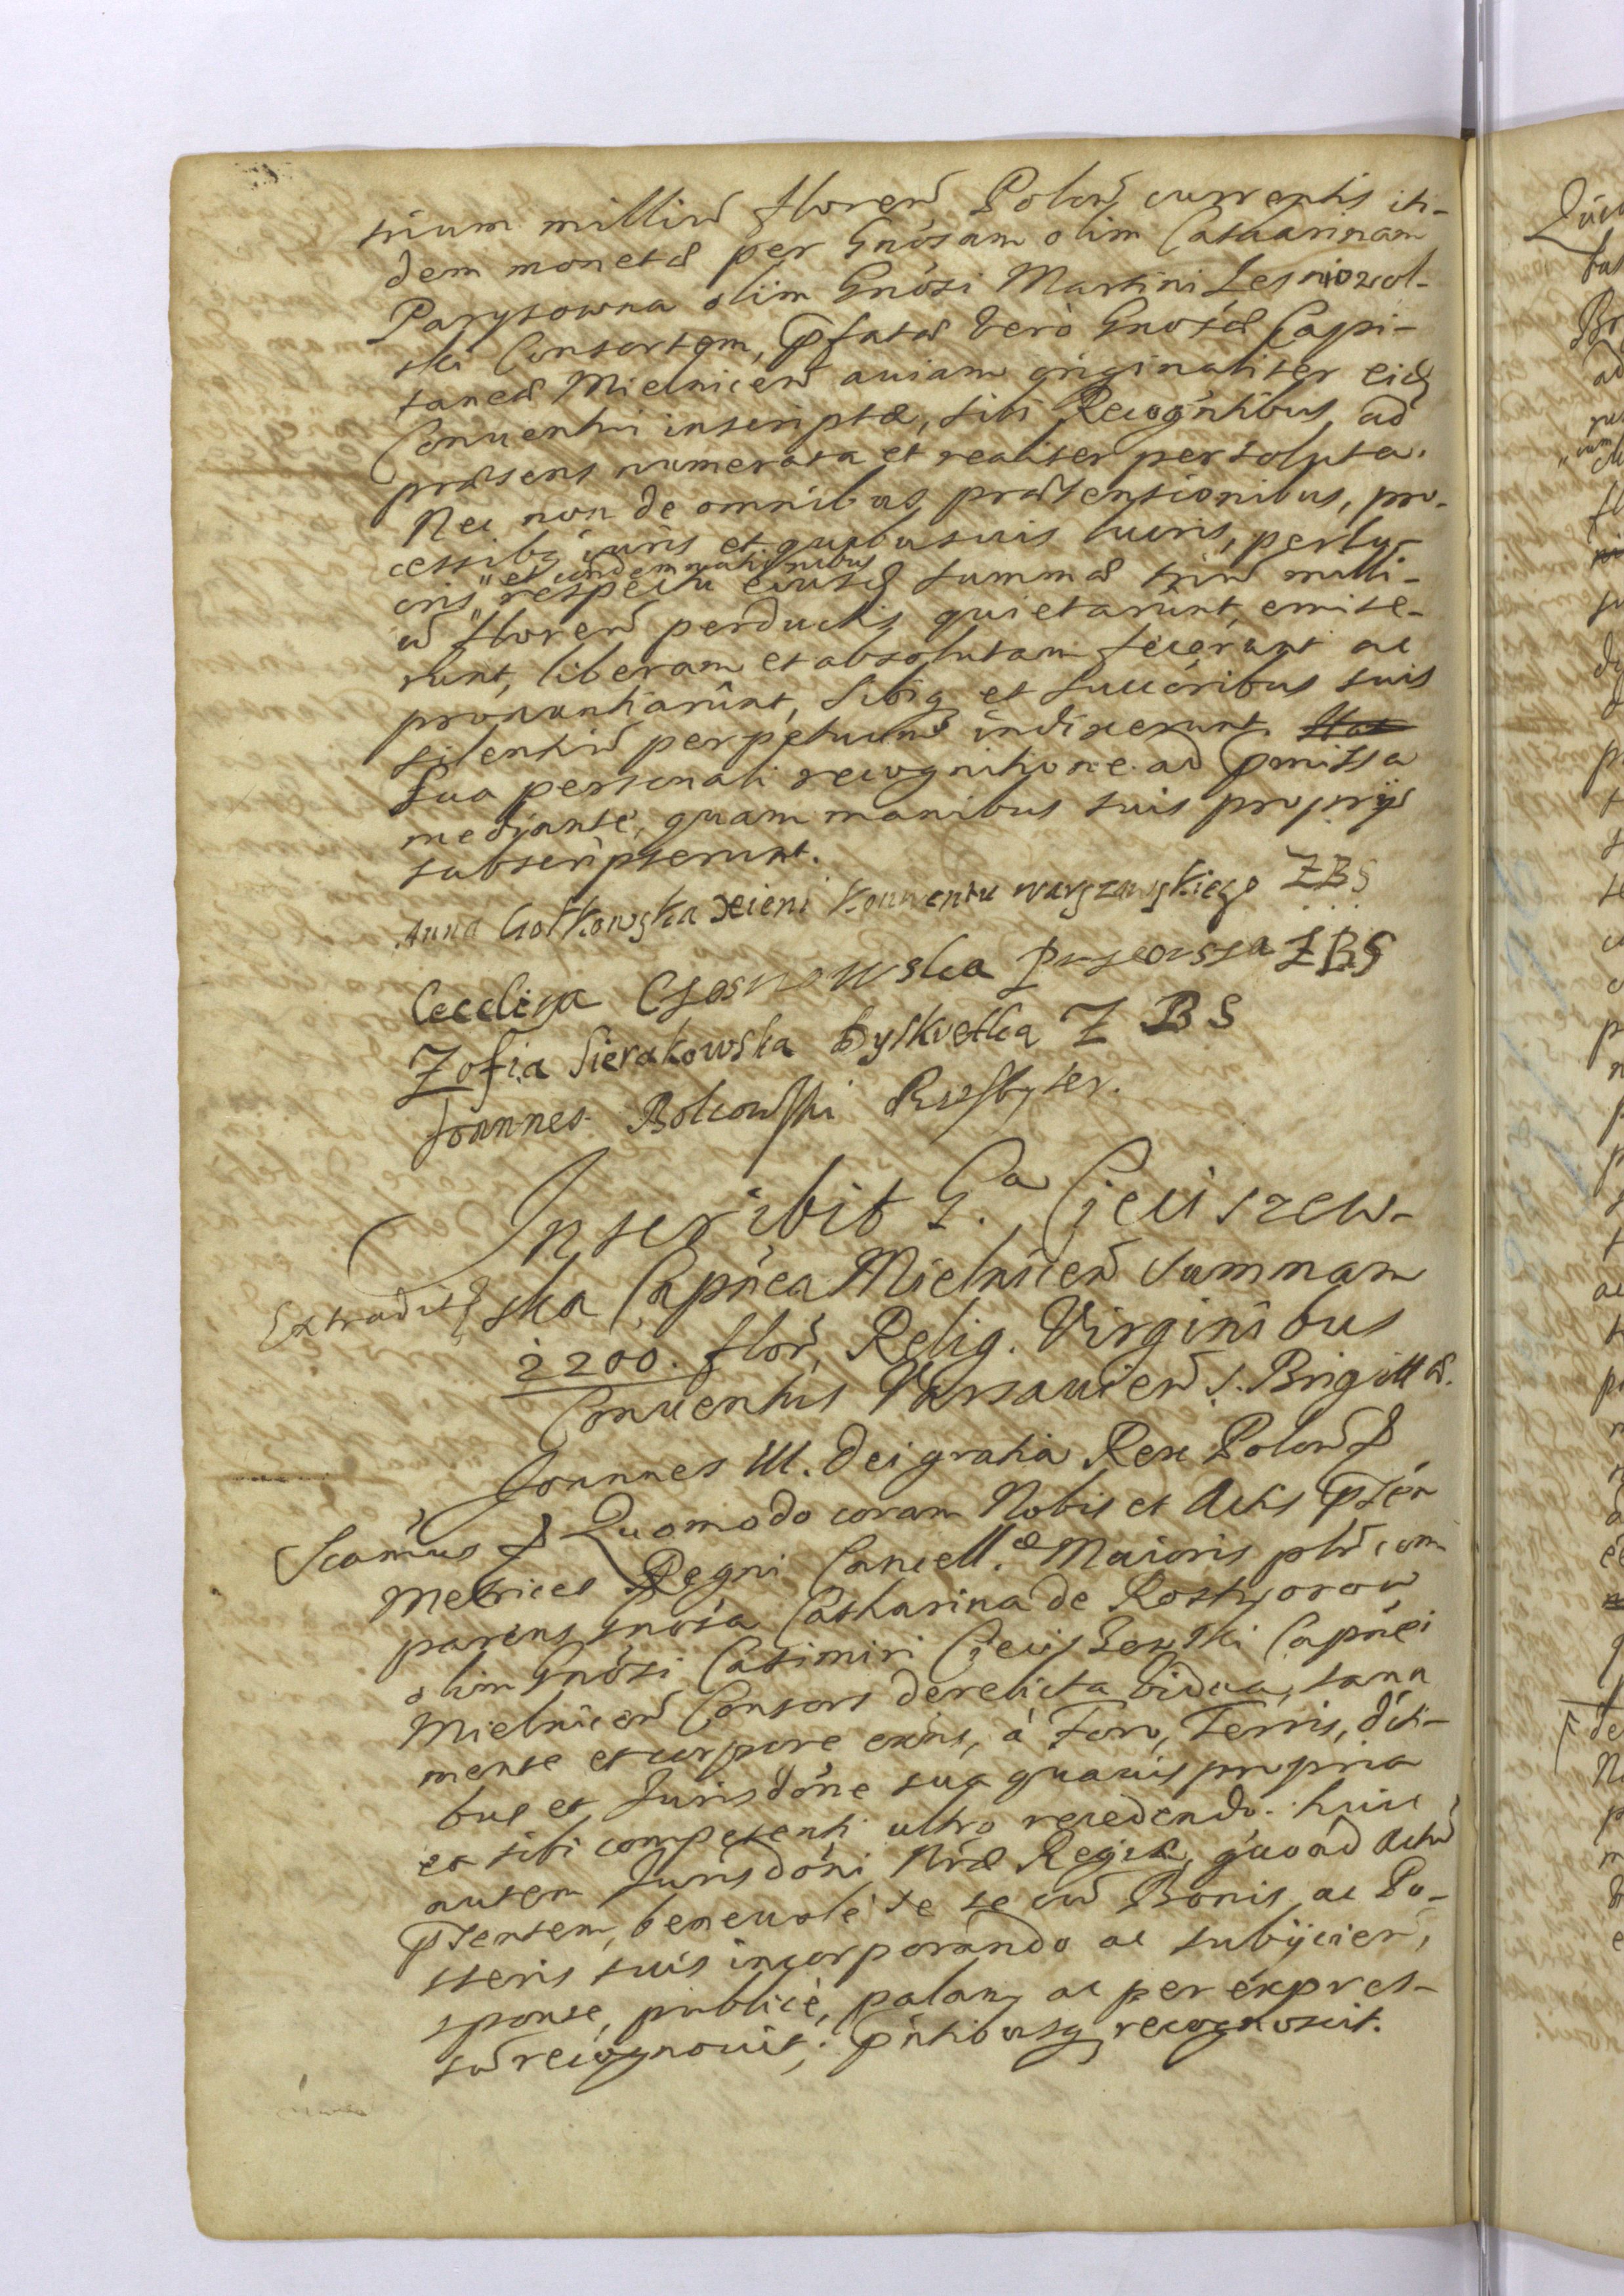 trium milliũ floren̄ Polon̄ currentis iti-
dem monetæ per Gnosam olim Catharinam
Parysowna olim Gnosi Martini Lesniowol-
ski Consortem, p̄fatæ verò Gnosæ Capi-
taneæ Mielnicen̄ auiam originaliter eidẽ
Conuentui inscriptæ, sibi Recogn̄tibus ad
præsens numerata et realiter persoluta.
Nec non de omnibus prætensionibus, pro-
cessibq́ iuris et quibusuis lucris, perlu-
cris "et condemnationibus
" respectu eiusdẽ summæ triũ milli-
ũ floren̄ perductis quietarunt, emise-
runt, liberam et absolutam fecerunt ac
pronuntiârunt, sibiq́ et succoribus suis
silentiũ perpetuum indixerunt.
Sua personali recognitione ad p̄missa
mediante, quam manibus suis proprijs
subscripserunt.
Anna Gotkowska Xieni Konwentu warszawskiego ZBS
Cecelija Czosnowska Przeorssa ZBS
Zofia Sierakowska Dyskretka Z BS
Joannes Bolcowski Presbyter.
Inscribit G.a Cieciszew-
Extradit̃ ska Capn̄ea Mielnicen̄ summam
2200. flor̄, Relig. Virginibus
Conuentus Varsauien̄ S. Brigittæ.
Joannes III. Dei gratia Rex Polon̄ &
Scamus & Quomodo coram Nobis et Actis p̄sen
Metrices Regni Cancell.æ Maioris pl̄r com-
parens Gnosa Catharina de Rostworow
olim Gnosi Casimiri Cieciszewski Capn̄ei
Mielnicen̄ Consors derelicta vidua, sana
mente et corpore exn̄s, à Foro, Terris, d̄sti-
bus et Jurisdōne sua quauis propria
et sibi competenti ultro recedendo. huic
autem Jurisdōni Nr̄æ Regiæ, quoad Actũ
p̄sentem, beneuolè se se cũ Bonis ac Po-
steris suis incorporando ac subijcien̄,
sponte, publicè, palam, ac per expres-
sũ recognouit, p̄ntibusq́ recognoscit.